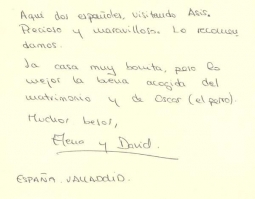 Aquí dos españoles, visitando Asis.
Precioso y maravilloso. Lo recomen
damos.
La casa muy bonita, pero lo
mejor la buena acogida del
matrimonio y de Oscar (el perro).
Muchos besos,
Elena y David.
ESPAÑA. VALLADOLID.